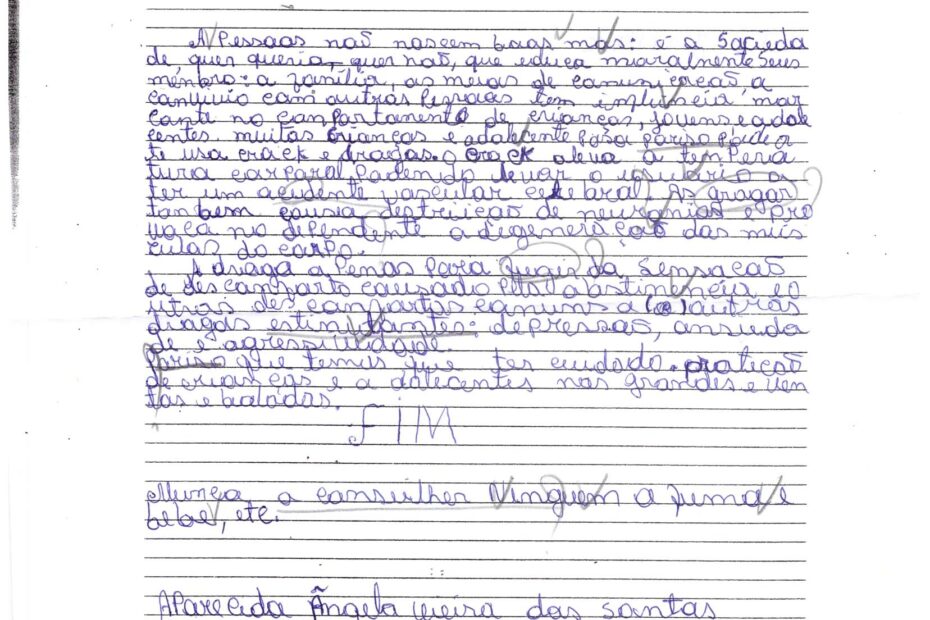 A Pessoas naõ nascem boas mas: é a Socieda
de, quer queria, quer naõ, que educa moralmente seus
menbro: a família, os meios de comunicação, a
convivio com outras Pessoas tem influncia, mar
cante no conportamento de crianças, jovens e adole
centes muitas crianças e adolecente
te usa crack e drogas. O crack eleva a temPera
tura corporal, Podendo levar o usuario a
ter um acidente vascular celebral. As drogas
tanbem causia destruição de neuronios e Pro
voca no dependente a degeneração das mús
culas do corpo.
A droga a Penas Para fugir da Sensação
de desconforto causado Pela abstinência e o
utros desconfortos comuns a (o) outras
drogas estimulantes: depressaõ, ansieda
de e agressividade.
Porisso que temus que ter cuidado.
de crianças e a dolecentes nas grandes e ven
tos e baladas.
FIM
Nunca a consulher Ninguem a fuma e
bebe, etc.
APArecida Ãngela vieira dos santos